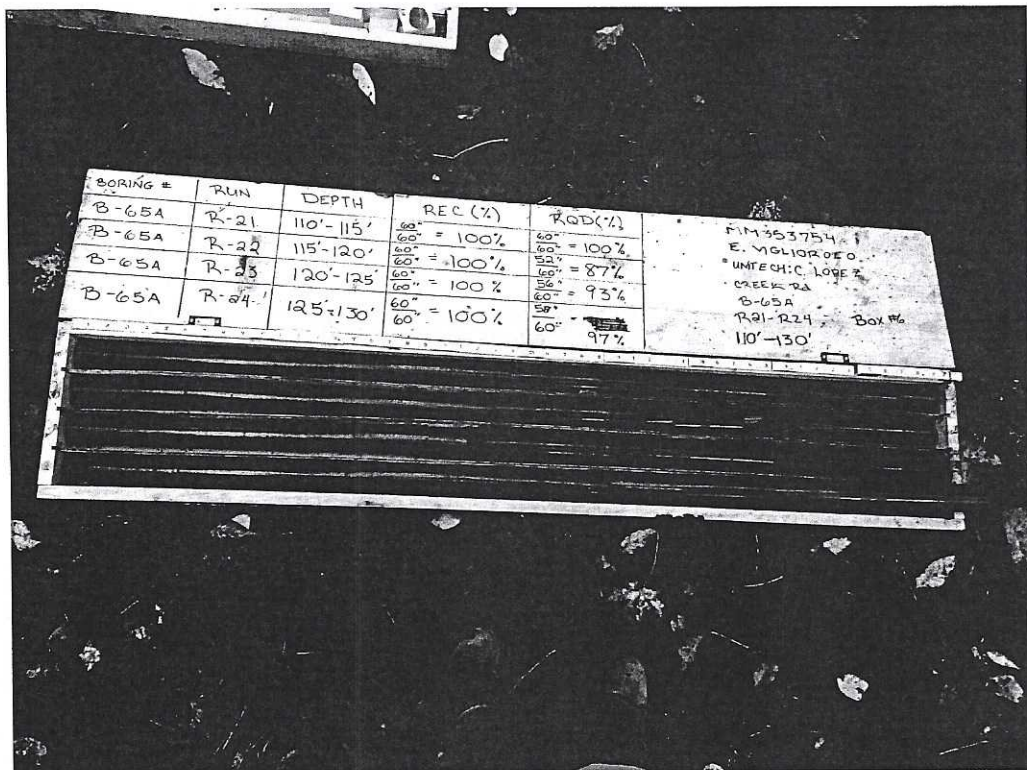 BORING # RUN DEPTH REC (%) RQD (%)
B-65A R-21 110'-115' 60"/60" = 100% 60"/60" = 100%
B-65A R-22 115'-120' 60"/60" = 100% 52"/60" = 87%
B-65A R-23 120'-125' 60"/60" = 100% 56"/60" = 93%
B-65A R-24 125'-130' 60"/60" = 100% 58"/60" = 97%
MM353754
E. VIGLIOROLO
UNITECH: C. LOPEZ
CREEK Rd
B-65A
R21-R24 Box #6
110'-130'